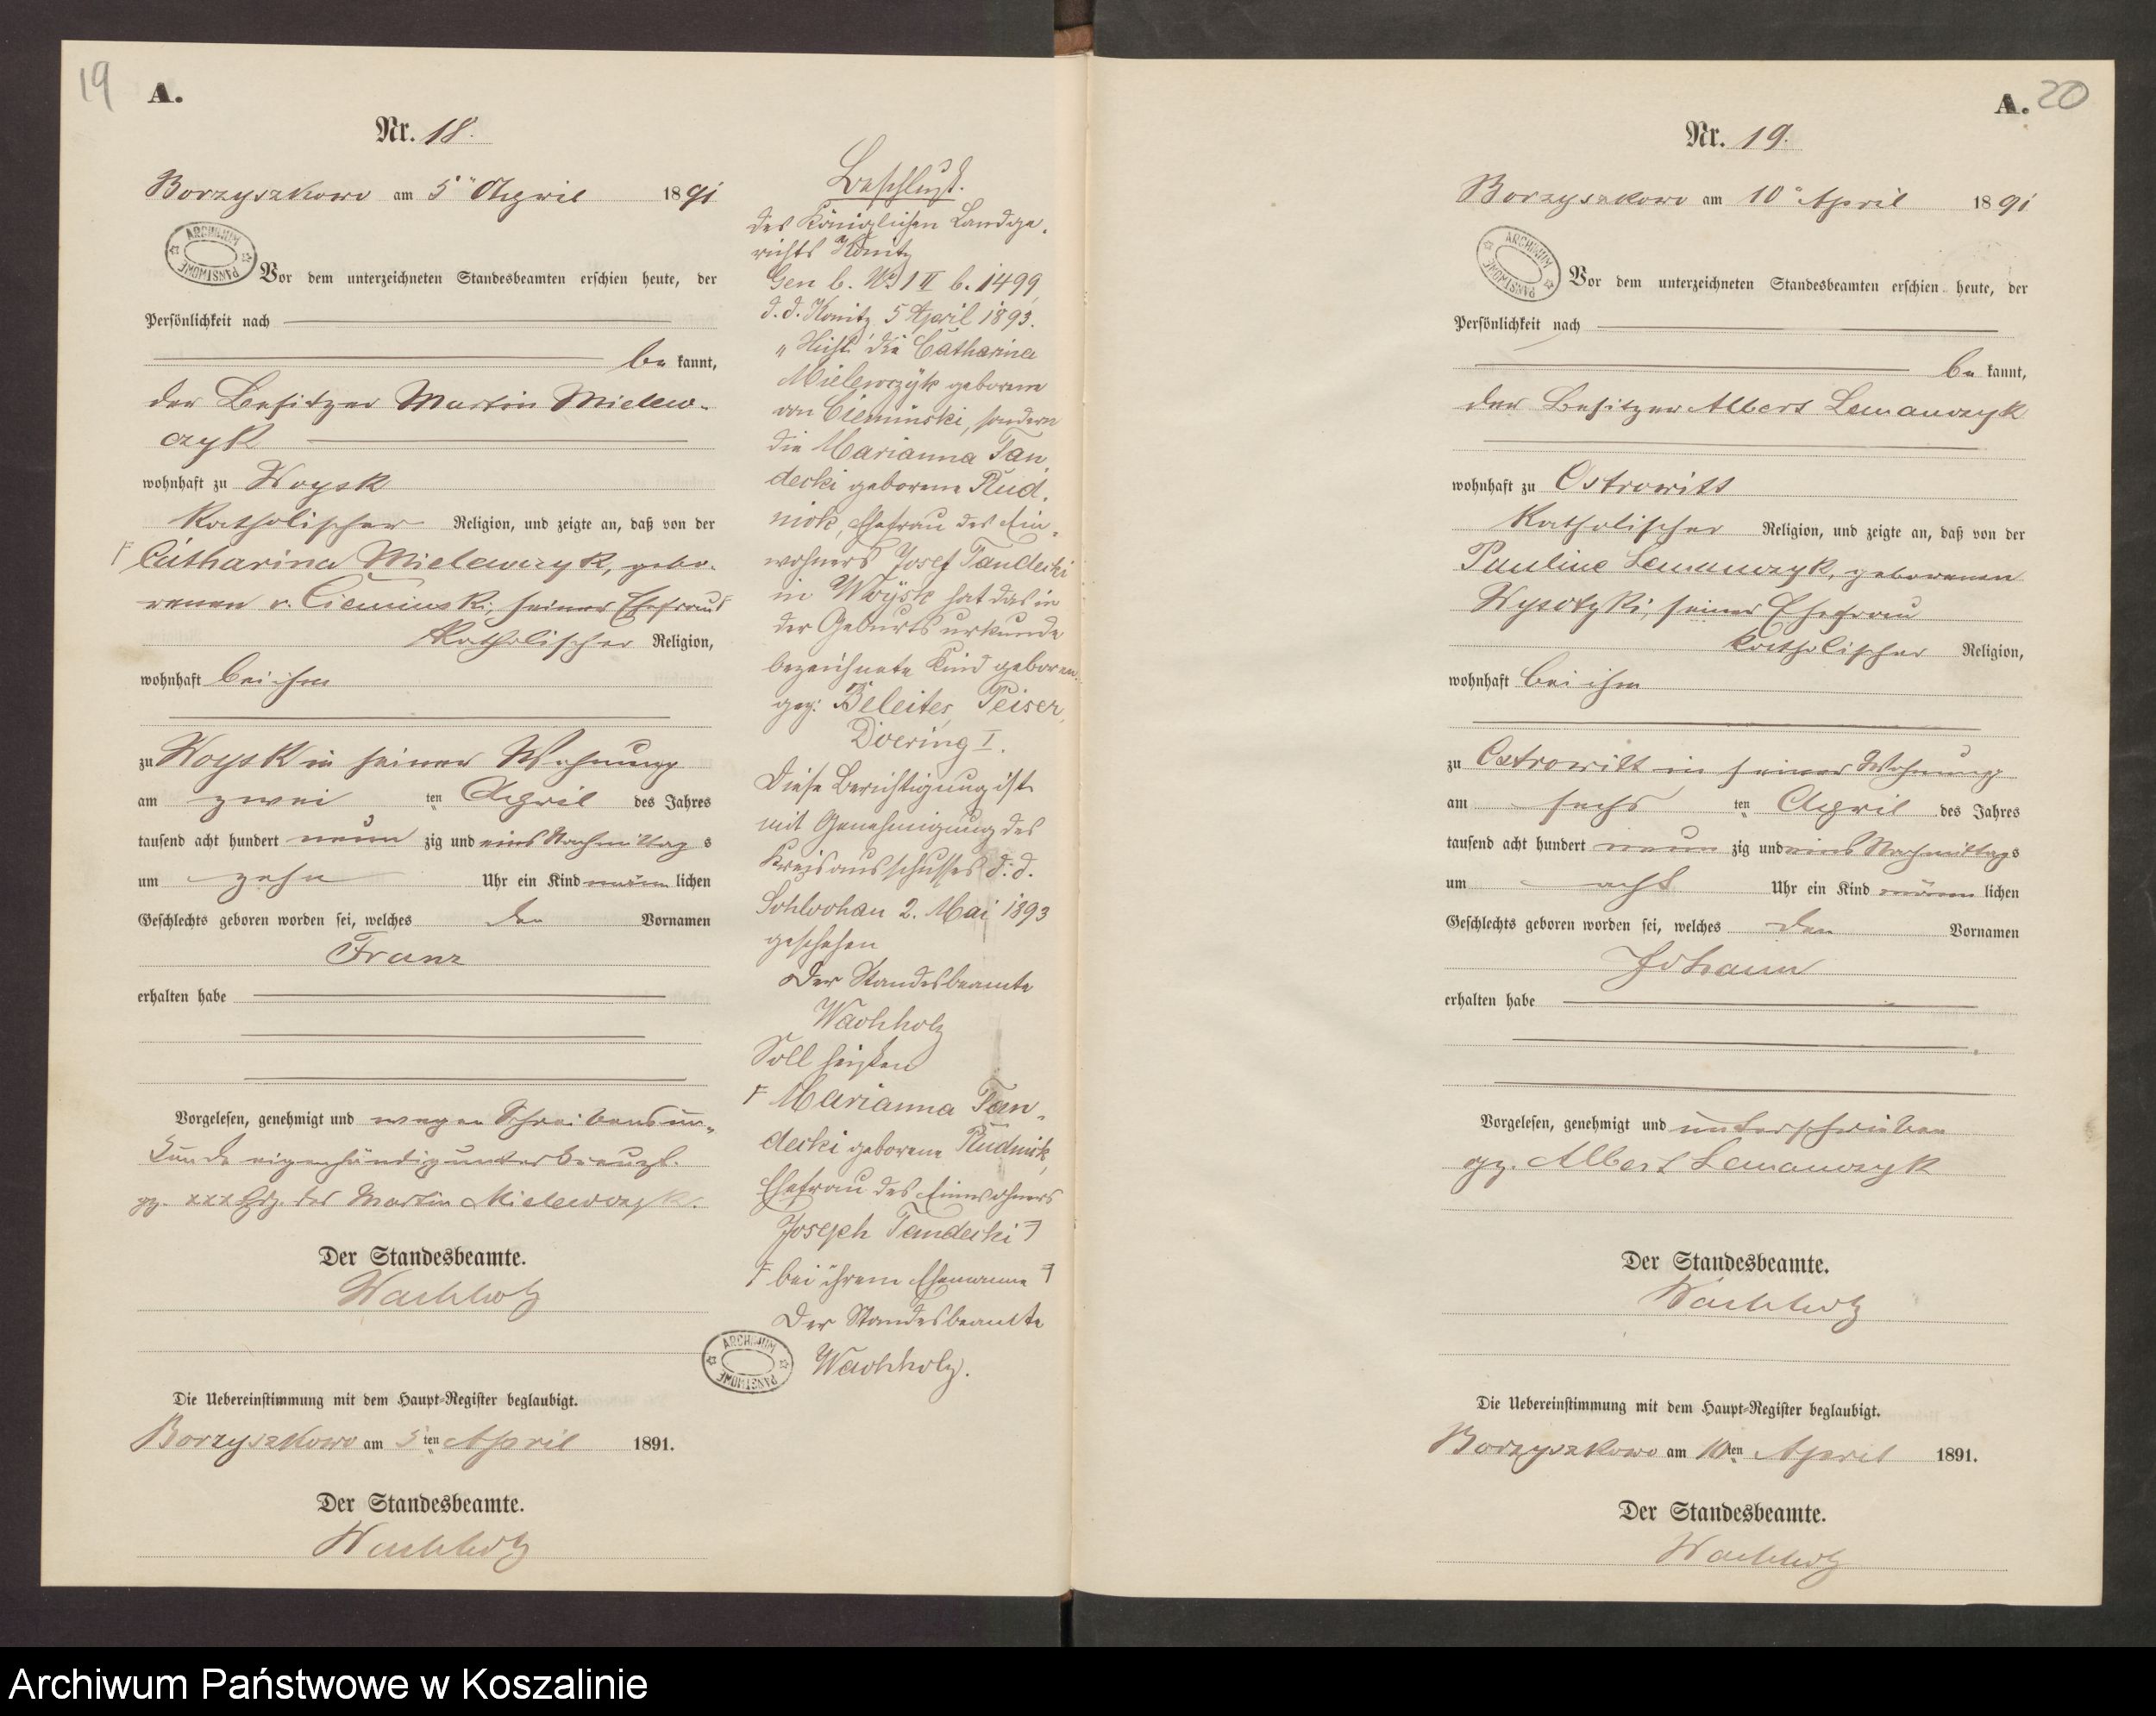 19
A.
Nr. 18.
Borzyszkowo am 5ten April 1891
ARCHIWUM PAŃSTWOWE
Vor dem unterzeichneten Standesbeamten erschien heute, der
Persönlichkeit nach
be kannt,
der Besitzer Martin Mielew-
czyk
wohnhaft zu Woysk
katholischer Religion, und zeigte an, daß von der
Catharina Mielewczyk, gebo-
renen v. Cieminski, seiner Ehefrau
katholischer Religion,
wohnhaft bei ihm
zu Woysk in seiner Wohnung
am zwei ten April des Jahres
tausend acht hundert neun zig und eins Nachmittag s
um zehn Uhr ein Kind männ lichen
Geschlechts geboren worden sei, welches den Vornamen
Franz
erhalten habe
Vorgelesen, genehmigt und wegen Schreibensun-
kunde eigenhändig unterkreuzt.
gz. xxx Hdz. des Martin Mielewczyk.
Der Standesbeamte.
Wachholz
Die Uebereinstimmung mit dem Haupt-Register beglaubigt.
Borzyszkowo am 5ten April 1891.
Der Standesbeamte.
Wachholz
Beschluß.
des Königlichen Landge-
richts Konitz
Gen b. No 1 II b. 1499
d. d. Konitz 5 April 1893.
„Nicht die Catharina
Mielewczyk geborene
von Cieminski, sondern
die Marianna Tan-
decki geborene Rud-
nick, Ehefrau des Ein-
wohners Josef Tandecki
in Woysk hat das in
der Geburtsurkunde
bezeichnete Kind geboren.
gez: Beleites, Peiser,
Doering I.
Diese Berichtigung ist
mit Genehmigung des
Kreisausschusses d. d.
Schlochau 2. Mai 1893
geschehen
Der Standesbeamte
Wachholz
Soll heißen
Marianna Tan-
decki geborene Rudnik,
Ehefrau des Einwohners
Joseph Tandecki
bei ihrem Ehemanne
Der Standesbeamte
Wachholz.
ARCHIWUM PAŃSTWOWE
A. 20
Nr. 19.
Borzyszkowo am 10ten April 1891
ARCHIWUM PAŃSTWOWE
Vor dem unterzeichneten Standesbeamten erschien heute, der
Persönlichkeit nach
be kannt,
der Besitzer Albert Lemanczyk
wohnhaft zu Ostrowitt
katholischer Religion, und zeigte an, daß von der
Pauline Lemanczyk, geborenen
Wysotzki, seiner Ehefrau
katholischer Religion,
wohnhaft bei ihm
zu Ostrowitt in seiner Wohnung
am sechs ten April des Jahres
tausend acht hundert neun zig und eins Nachmittags
um acht Uhr ein Kind männ lichen
Geschlechts geboren worden sei, welches den Vornamen
Johann
erhalten habe
Vorgelesen, genehmigt und unterschrieben
gz. Albert Lemanczyk
Der Standesbeamte.
Wachholz
Die Uebereinstimmung mit dem Haupt-Register beglaubigt.
Borzyszkowo am 10ten April 1891.
Der Standesbeamte.
Wachholz
Archiwum Państwowe w Koszalinie